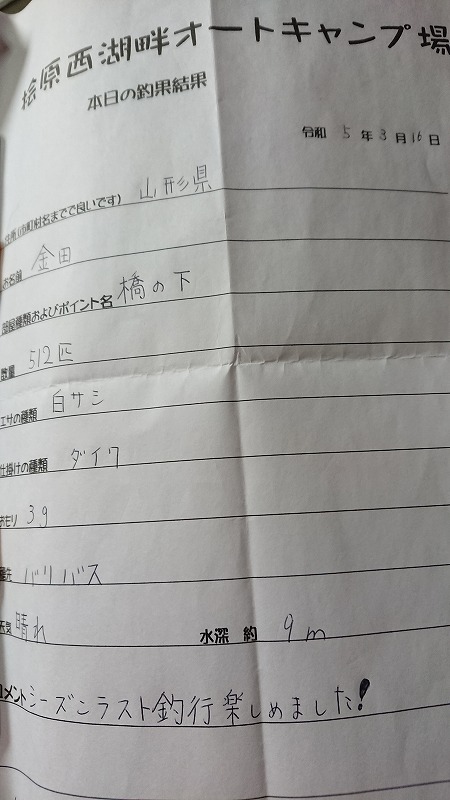 桧原西湖畔オートキャンプ場
本日の釣果結果
令和 5 年 3 月 16 日
住所(市町村名までで良いです) 山形県
お名前 金田
部屋種類およびポイント名 橋の下
数量 512匹
エサの種類 白サシ
仕掛けの種類 ダイワ
おもり 3g
穂先 バリバス
天気 晴れ 水深 約 9m
コメント シーズンラスト釣行楽しめました!